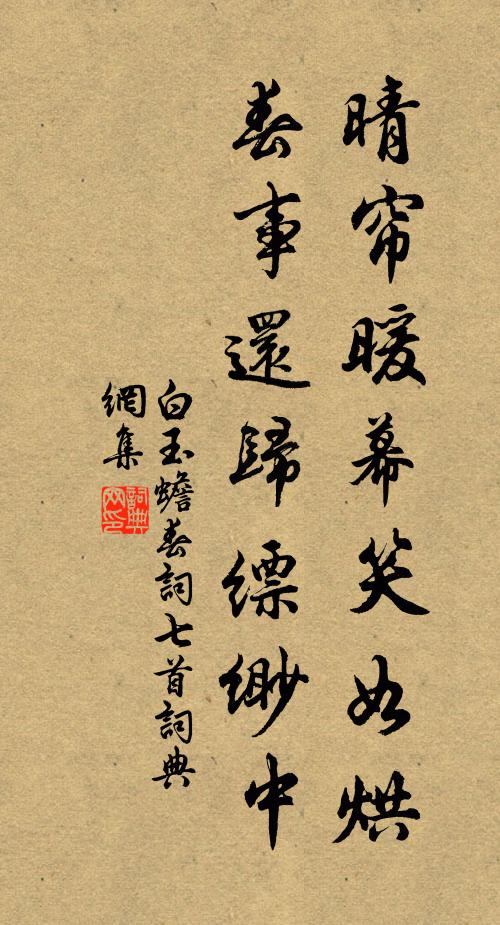 晴帘暖幕笑如烘
春事還歸縹緲中
白玉蟾春詞七首詞典
網集
詞典網印